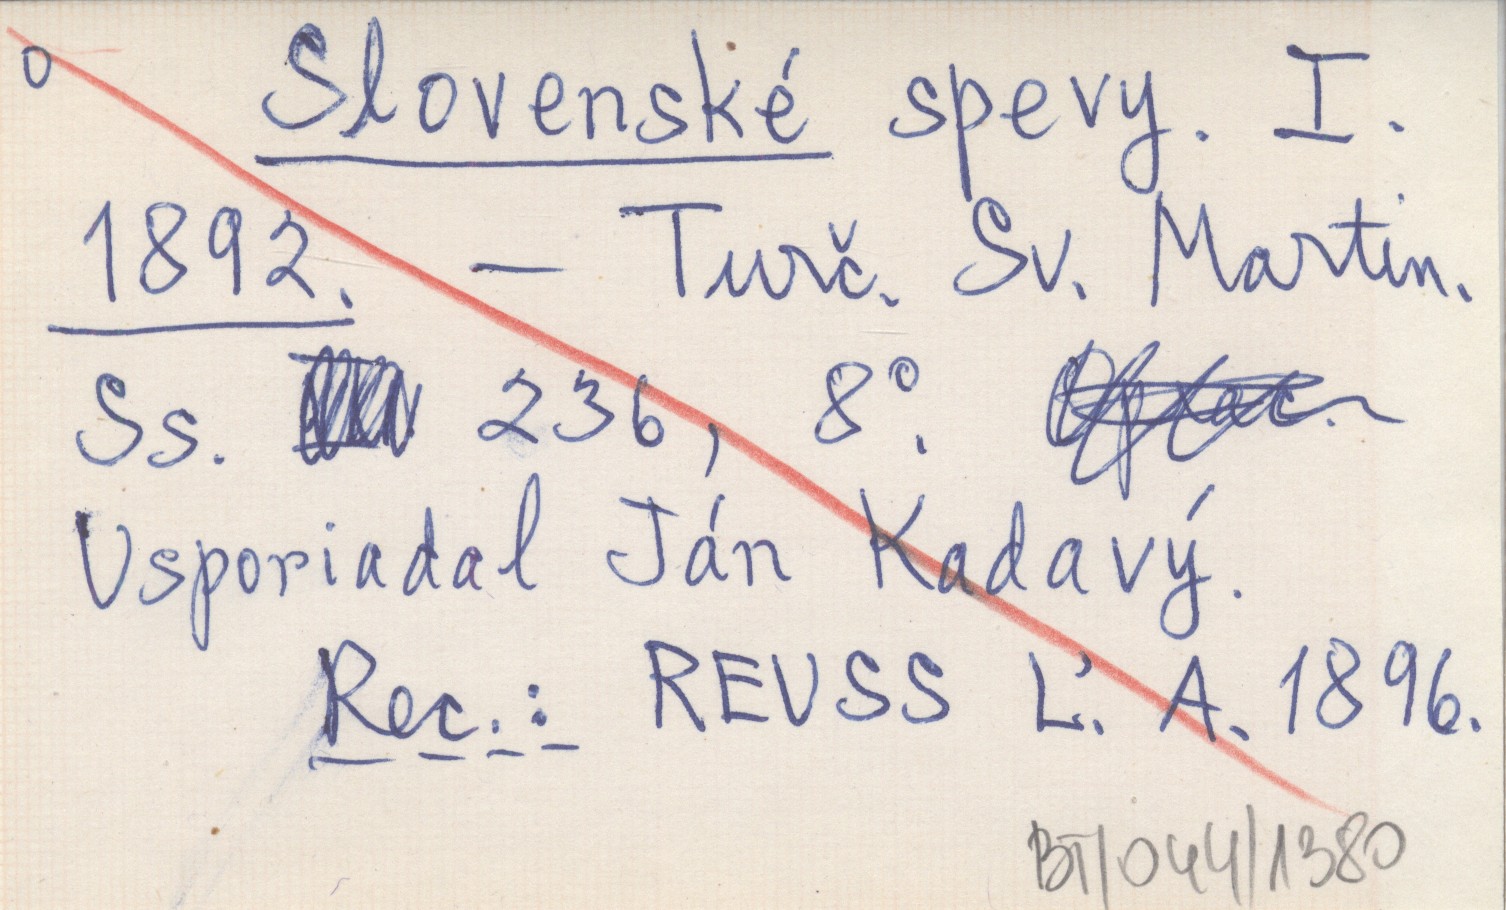 o
Slovenské spevy. I.
1892. — Turč. Sv. Martin.
Ss. 236, 8°.
Usporiadal Ján Kadavý.
Rec.: REUSS Ľ. A. 1896.
BT/044/1380